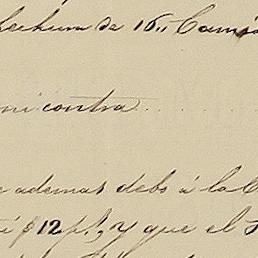 hechura de 16,, Camis
mi contra
ademas debo á la C
$12 p.s, y que el